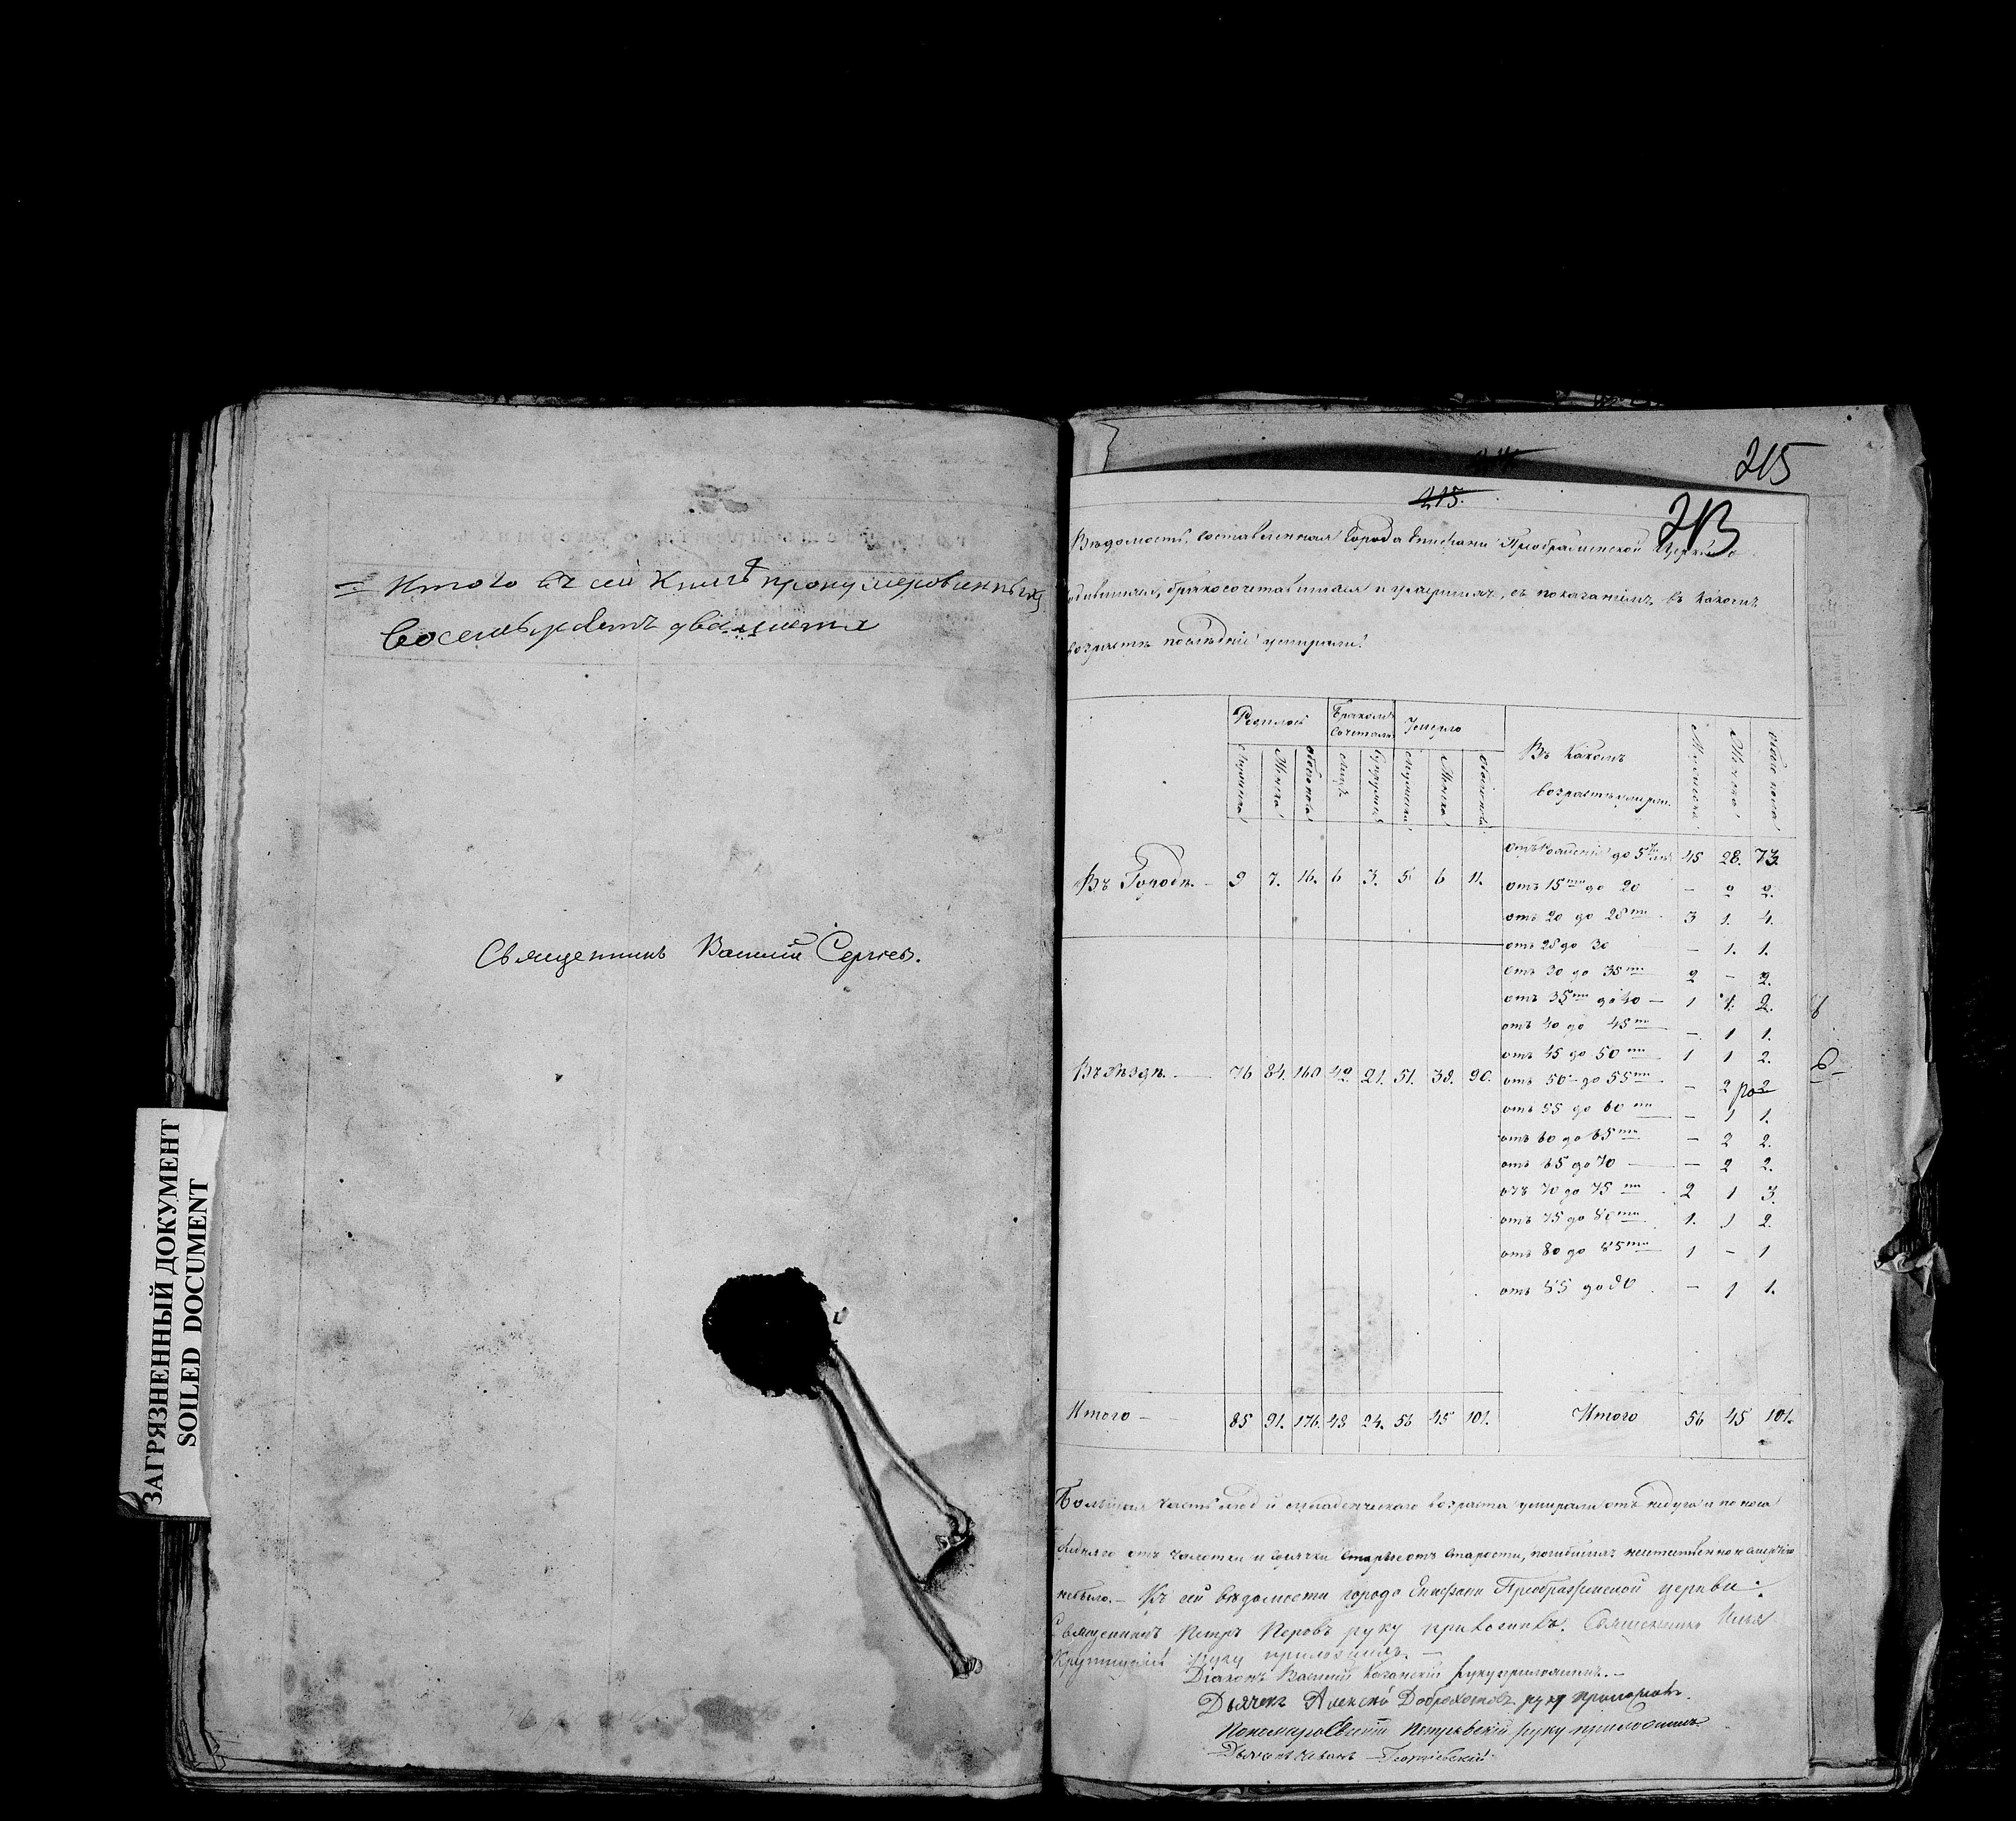 = Итого въ сей книгѣ пронумерованныхъ
восемьдесятъ два листа
Священникъ Василій Сергіев.
ЗАГРЯЗНЕННЫЙ ДОКУМЕНТ
SOILED DOCUMENT
215
215.
213
Вѣдомость, составленная города Епифани Преображенской Церкви о
бракосочетавшихся и умершихъ, съ показаніемъ, въ какомъ
возрастѣ послѣдніе умирали.
Родилось Бракомъ сочетались Умерло Въ какомъ возрастѣ умерли. Мужеска Женска Обоего пола
Мужеска Женска Обоего пола Лицъ Супружествъ Мужеска Женска Обоего пола
Въ Городѣ. — 9 7. 16. 6 3. 5 6 11.
Въ Уѣздѣ. — 76 84. 160 42. 21. 51. 39. 90.
отъ рожденія до 5ти лѣтъ 45 28. 73.
отъ 15ти до 20 — 2 2.
отъ 20 до 25ти 3 1. 4.
отъ 25 до 30 — 1. 1.
отъ 30 до 35ти 2 — 2.
отъ 35ти до 40 — 1 1. 2.
отъ 40 до 45ти — 1 1.
отъ 45 до 50ти 1 1 2.
отъ 50 до 55ти — 2 2
отъ 55 до 60ти — 1 1.
отъ 60 до 65ти — 2 2.
отъ 65 до 70 — — 2 2.
отъ 70 до 75ти 2 1 3.
отъ 75 до 80ти 1. 1 2.
отъ 80 до 85ти 1 — 1
отъ 85 до 90 — 1 1.
Итого — 85 91. 176. 48 24. 56 45 101. Итого 56 45 101.
Большая часть людей младенческаго возраста умирали отъ недуга и поноса
отъ чахотки и горячки старые отъ старости, погибшихъ неестественною смертію
небыло. — Къ сей вѣдомости города Епифани Преображенской церкви:
Священникъ Петръ Перовъ руку приложилъ. Священникъ Илья
руку приложилъ. —
Діаконъ Василій руку приложилъ. —
Дьячекъ Алексѣй Доброхотовъ руку приложилъ.
Пономарь Василій Петровскій руку приложилъ
Дьячекъ Иванъ Георгіевскій